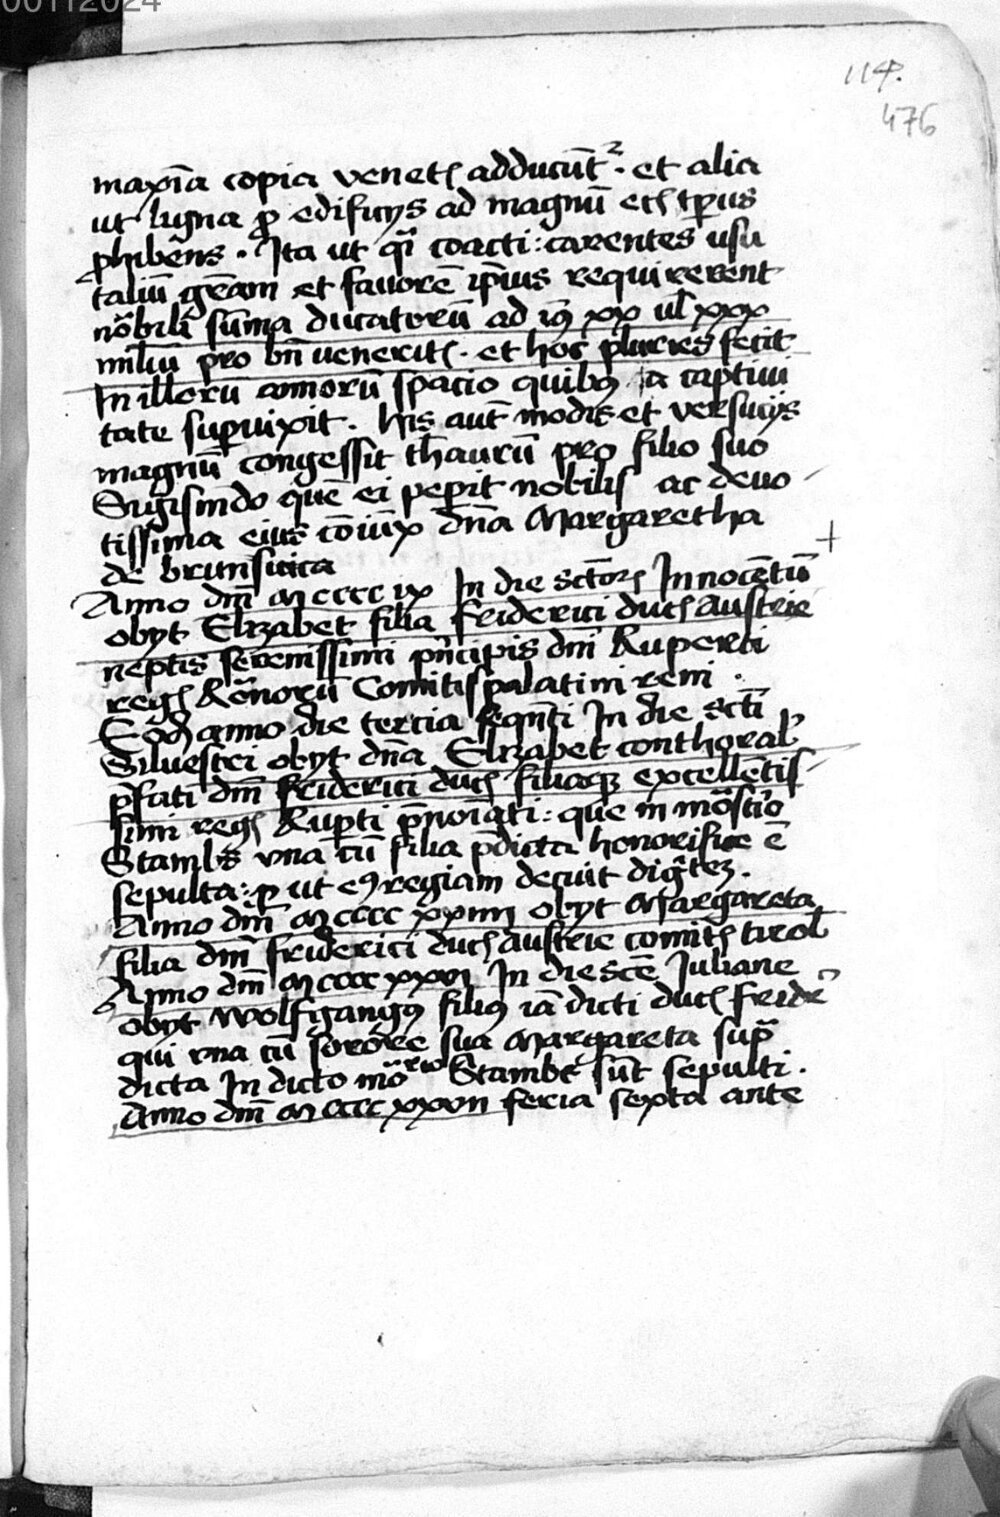 00112024
114.
476
maxīa copia venetꝭ adducūt². et alia
ut ligna ꝓ edificijs ad magnū etꝭ tp̄us
ꝓhibēns. Ita ut q̄i coacti : carentes usu
taliū grēam et favorē ip̄ius requirerent
nōbili sūma ducatorū ad xx ul̄ xxx
miliū pro bn̄ veneritꝭ. et hoc pluries fecit
In illorū annorū spacio quibꝯ a captiui
tate suꝑuixit. his aut̄ modis et versucijs
magnū congessit th̄aurū pro filio suo
Sigismdo quē ei peꝑit nobilis ac deuo
tissima eius cōiūx dn̄a Margaretha
de brunswica
Anno dm̄ Mcccc ix In die sct̄orꝝ Innocētū
obyt Elizabet filia friderici ducꝭ Austrie
neptis serenissimi pn̄cipis dm̄ Ruperti
regꝭ Rōnorū Comitis palatini reni.
Eod̄ anno die tercia seqn̄ti In die sct̄i
Siluestri obyt dn̄a Elizabet conthoral̄
p̄fati dm̄ friderici ducꝭ filiaqꝫ excellētis
simi regꝭ Ruꝑti p̄noīati : que in mōst̄io
Stambs vna cū filia p̄dicta honorifice ē
sepulta : ꝓ ut eꝯ regiam decuit dig̅tēꝫ.
Anno dm̄ Mcccc xxiiii obyt Margareta
filia dm̄ friderici ducꝭ austrie comitꝭ tirol̄
Anno dm̄ Mcccc xxvi In die scē Juliane
obyt Wolfgangꝯ filiꝯ iā dicti ducꝭ frid̄e
qui vna cū sorore sua Margareta sup̄
dicta In dicto mōrio Stambs̄ sūt sepulti.
Anno dm̄ Mcccc xxvii feria sexta ante